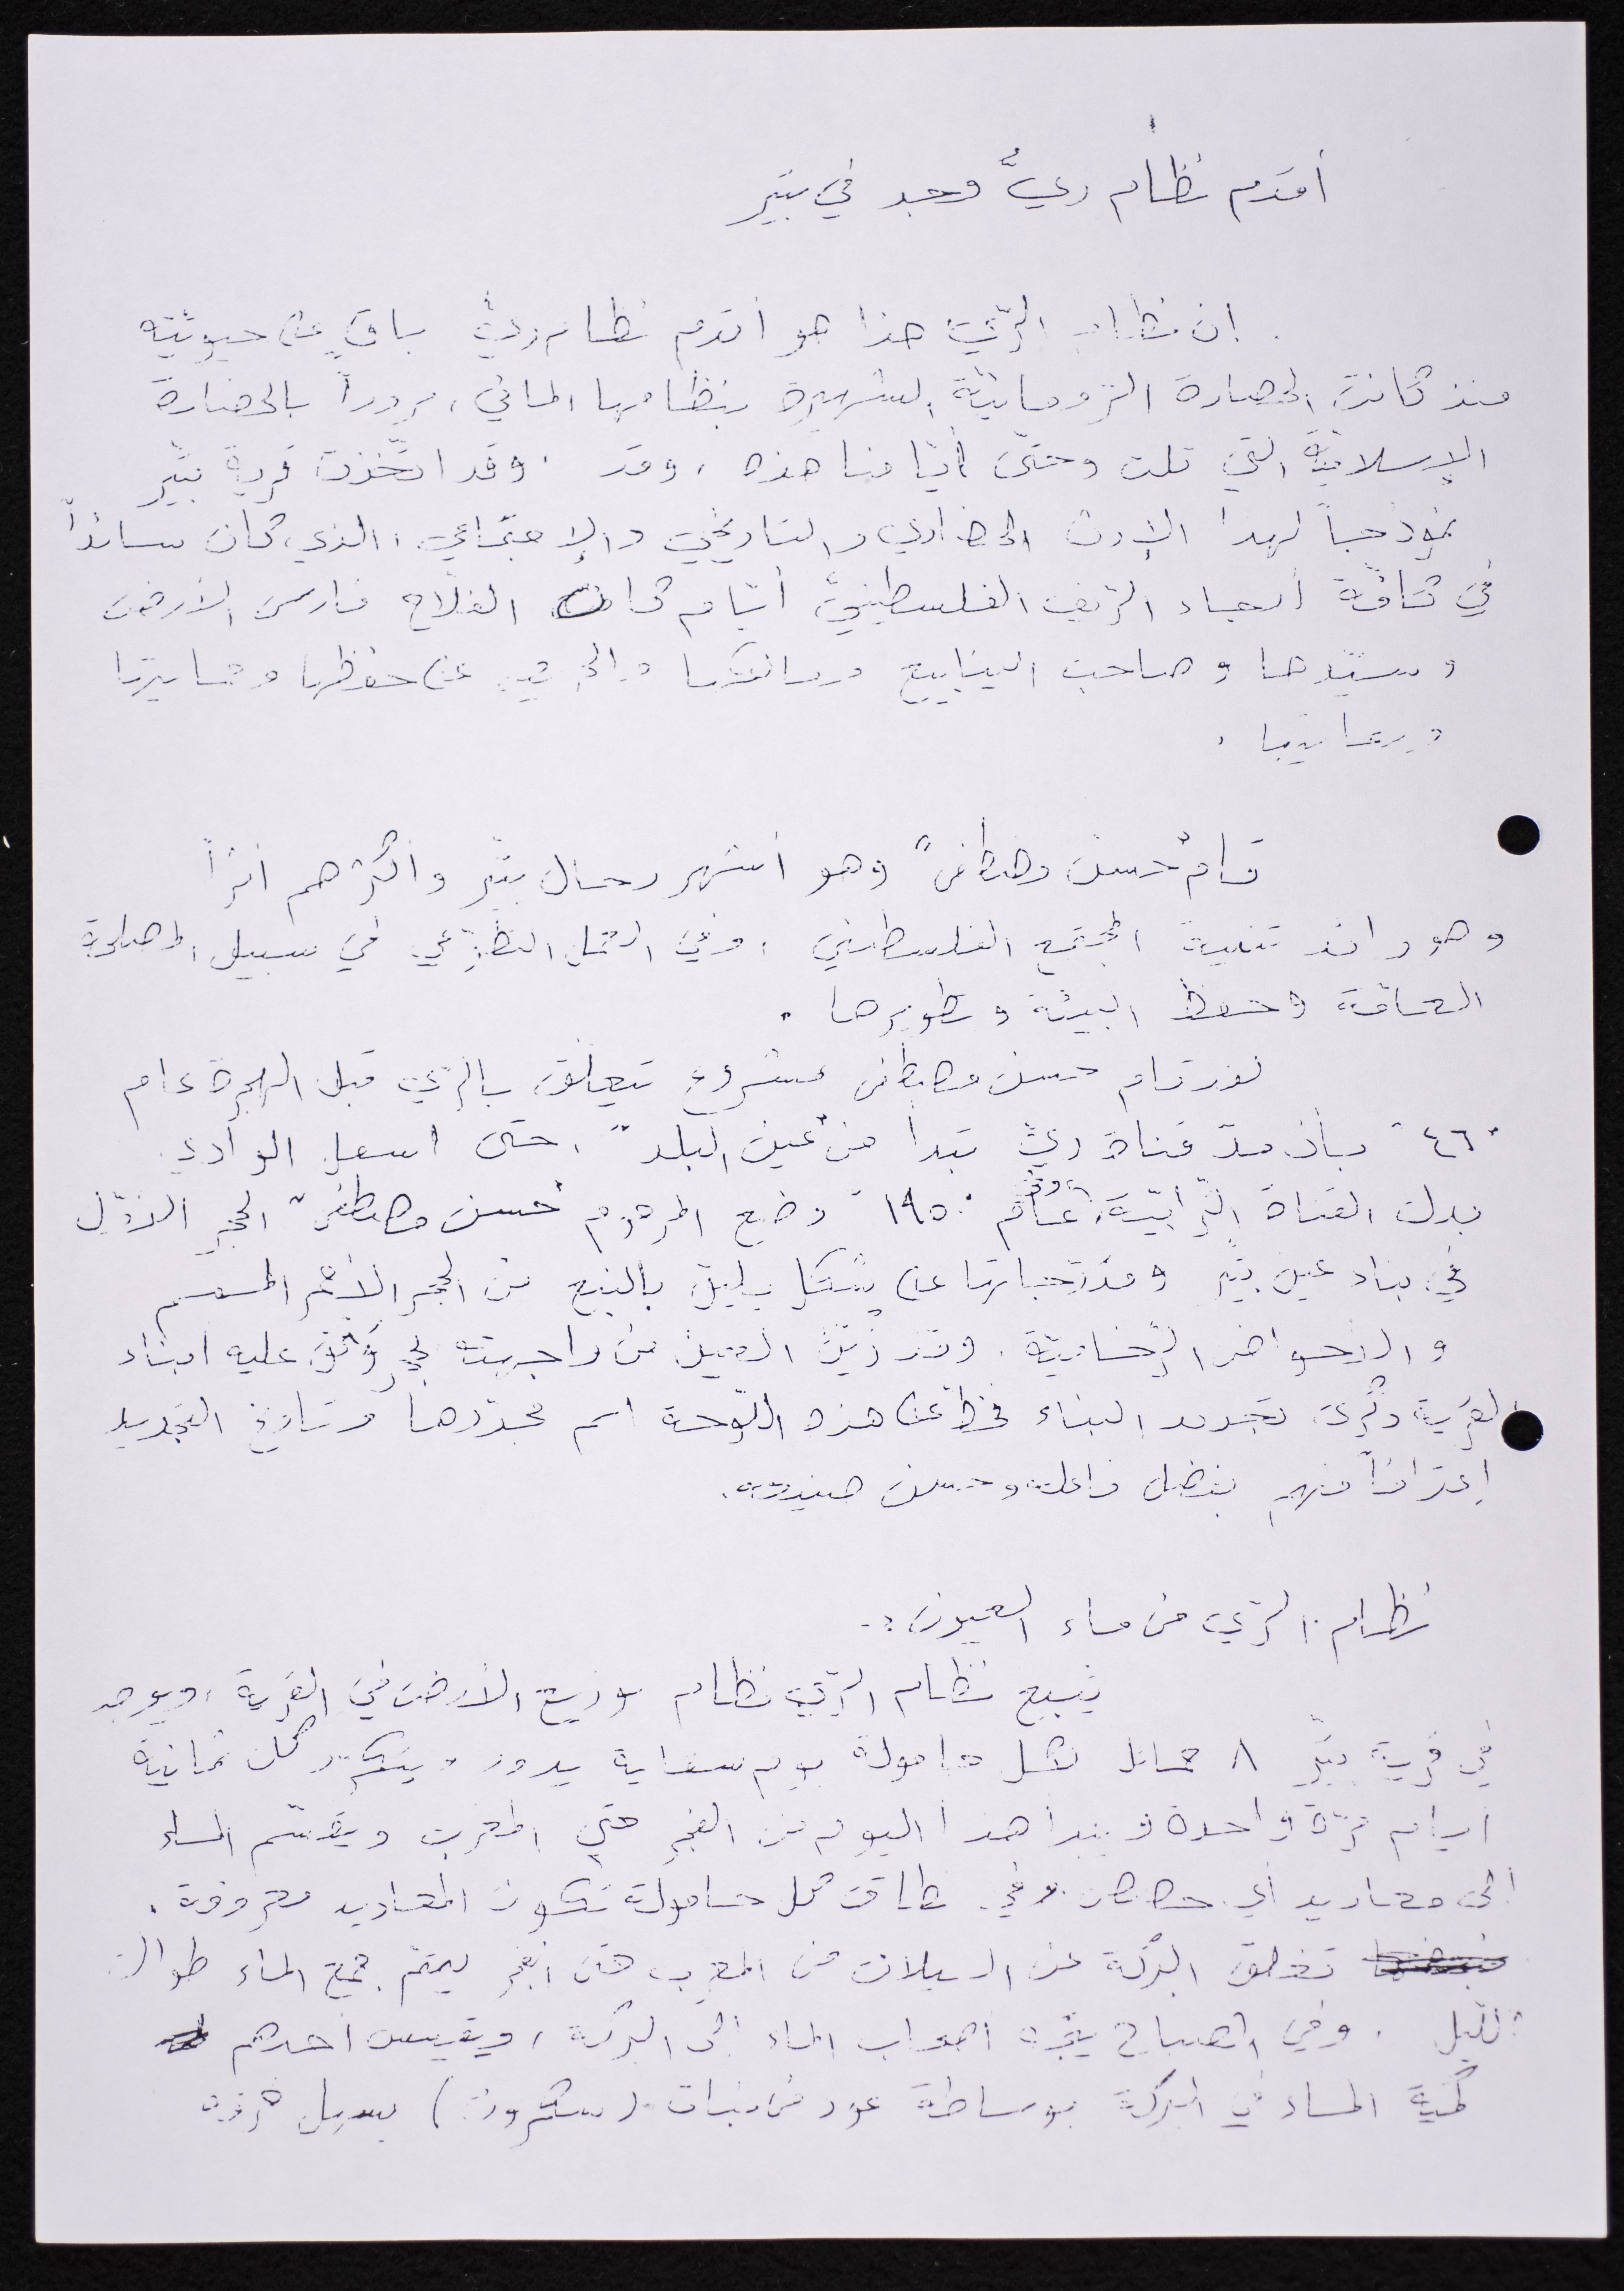 أقدم نظام ريّ وجد في بتّير
ان نظام الرّي هذا هو أقدم نظام ريّ باقٍ على حيويّته
منذ كانت الحضارة الرّومانيّة الشهيرة بنظامها المائي، مروراً بالحضارة
الإسلاميّة التي تلت وحتّى أيّامنا هذه، وقد . وقد اتّخذت قرية بتّير
نموذجاً لهذا الإرث الحضاري والتاريخي والإجتماعي، الذي كان سائداً
في كافّة أنحاء الرّيف الفلسطينيّ أيّام كان الفلّاح فارس الأرض
وسيّدها وصاحب الينابيع ومالكها والحريص على حفظها وحمايتها
ورعايتها.
قام "حسن مصطفى" وهو أشهر رجال بتّير وأكثرهم أثراً
وهو رائد تنمية المجتمع الفلسطيني، وفي العمل التطوّعي في سبيل المصلحة
العامّة وحفظ البيئة وتطويرها.
لقد قام حسن مصطفى بمشروع يتعلّق بالرّي قبل الهجرة عام
"٤٦" بأن مدّ قناة ريّ تبدأ من "عين البلد"، حتى اسفل الوادي
بدل القناة التّرابيّة، وفي عام "١٩٥٠" وضع المرحوم "حسن مصطفى" الحجر الأوّل
في بناء عين بتّير ومدّ جنباتها على شكل يليق بالنبع من الحجر الأحمر المسمسم
والأحواض الرّخاميّة. وقد زيّن العين من واجهته حجر وثّق عليه ابناء
القرية ذكرى تجديد البناء فخطّ على هذه اللّوحة اسم مجدّدها وتاريخ التجديد
إعترافاً منهم بفضل فاعله وحسن صنيعه.
نظام الرّي من ماء العيون:-
يتبع نظام الرّي نظام توزيع الأرض في القرية، ويوجد
في قرية بتّير ٨ حمائل لكل حامولة يوم سقاية يدور ويتكرّر كل ثمانية
ايام مرّة واحدة ويبدأ هذا اليوم من الفجر حتى المغرب ويقسّم الماء
الى معاديد أي حصص وفي نطاق كل حامولة تكون المعاديد معروفة.
تغلق البركة عن السيلان من المغرب حتى الفجر ليتم جمع الماء طوال
اللّيل. وفي الصباح يتجه اصحاب الماء الى البركة، ويقيس احدهم
كميّة الماء في البركة بوساطة عود من نبات (سكرون) بسبيل